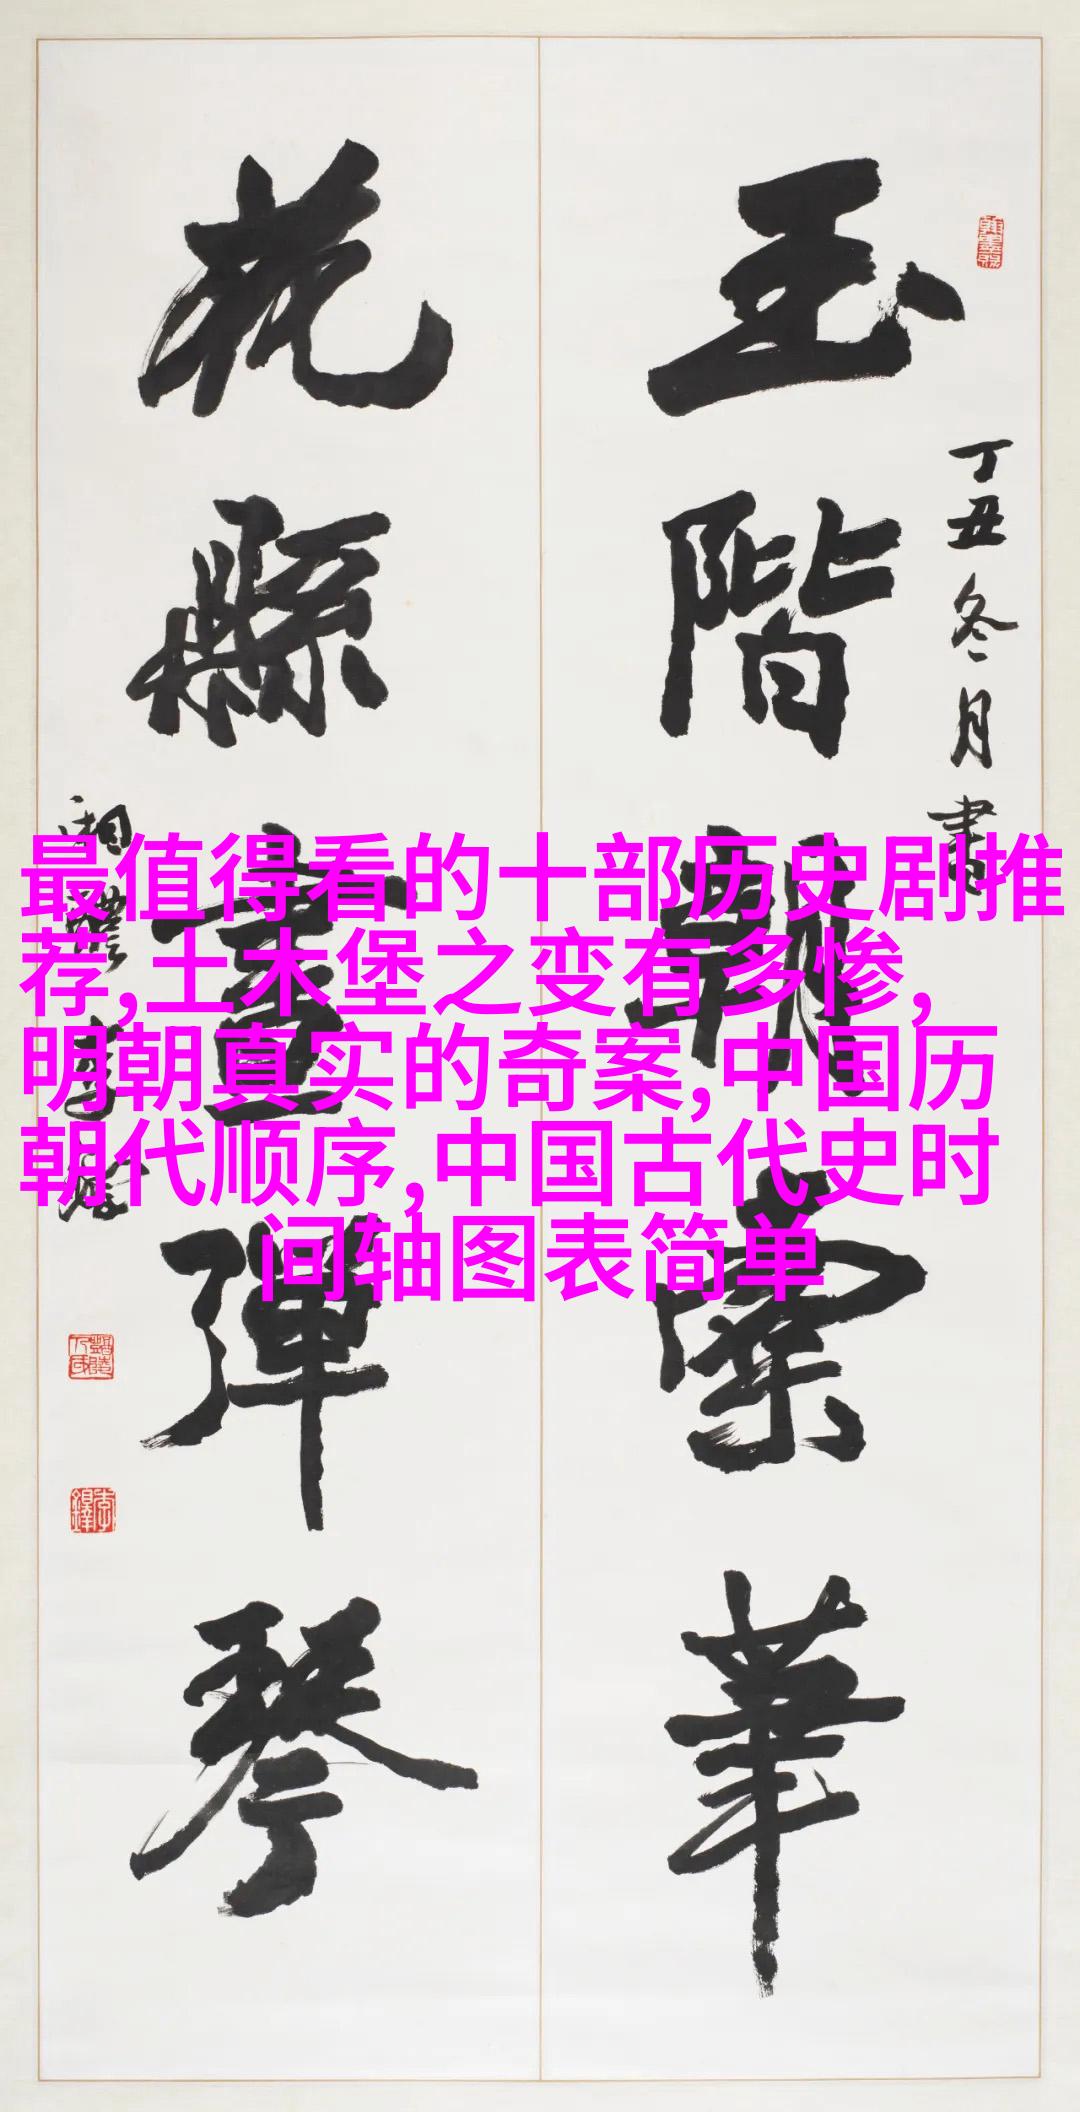 玉階觀紫華
花縣畫彈琴
丁丑冬月書
最值得看的十部历史剧推
荐,土木堡之变有多惨,
明朝真实的奇案,中国历
朝代顺序,中国古代史时
间轴图表简单